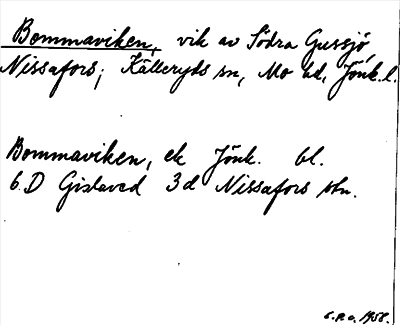 Bommaviken, vik av Södra Gussjö,
Nissafors; Källeryds sn, Mo hd, Jönk.l.
Bommaviken, ek Jönk. bl.
6 D Gislaved 3d Nissafors stn.
1958.